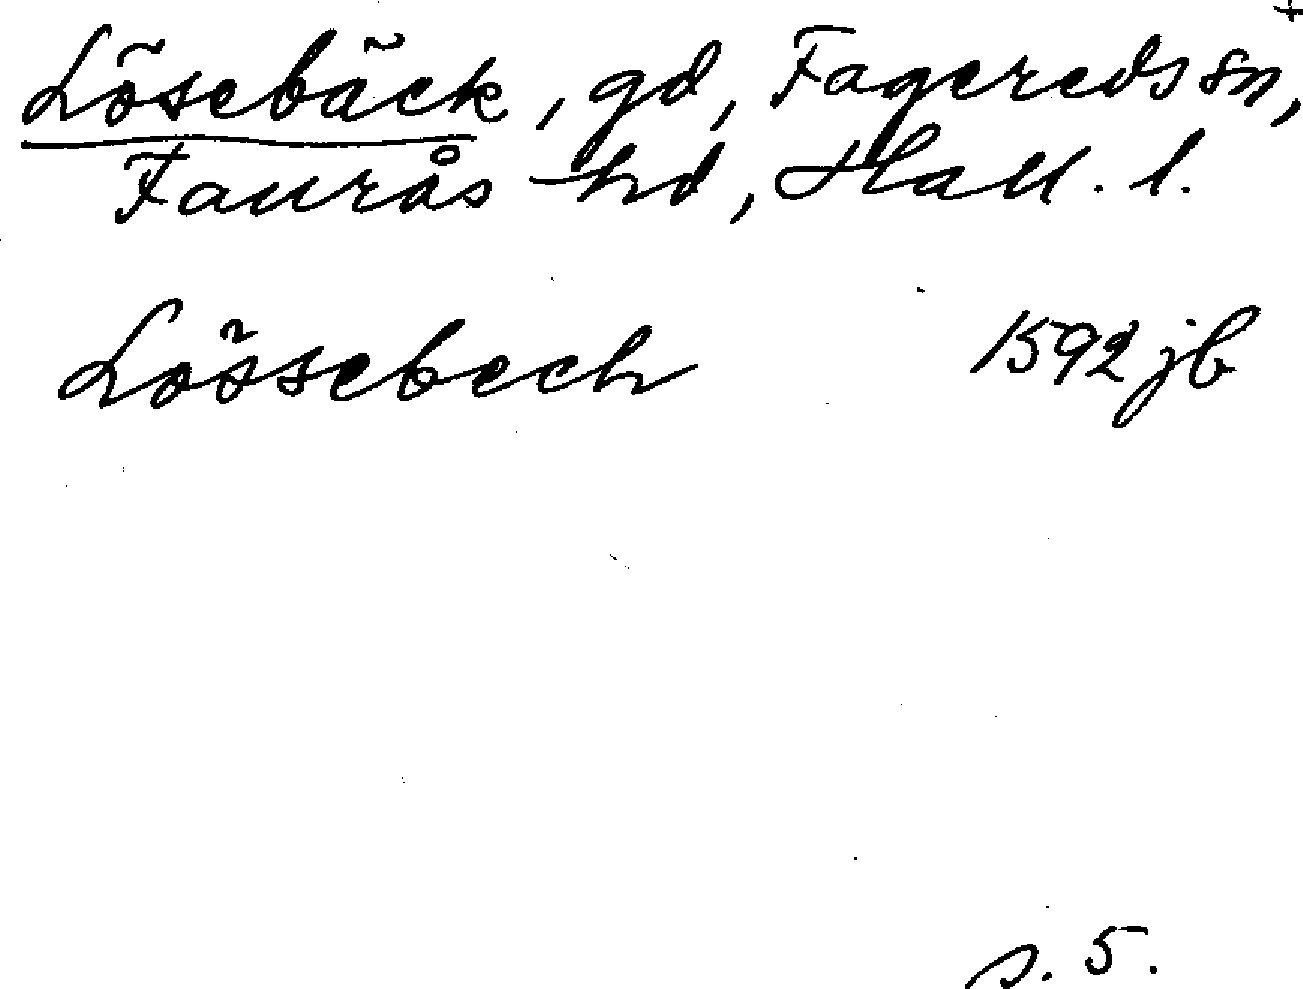 +
Lösebäck, gd, Fagereds sn,
Faurås hd, Hall. l.
Lössebech 1592 jb
s. 5.